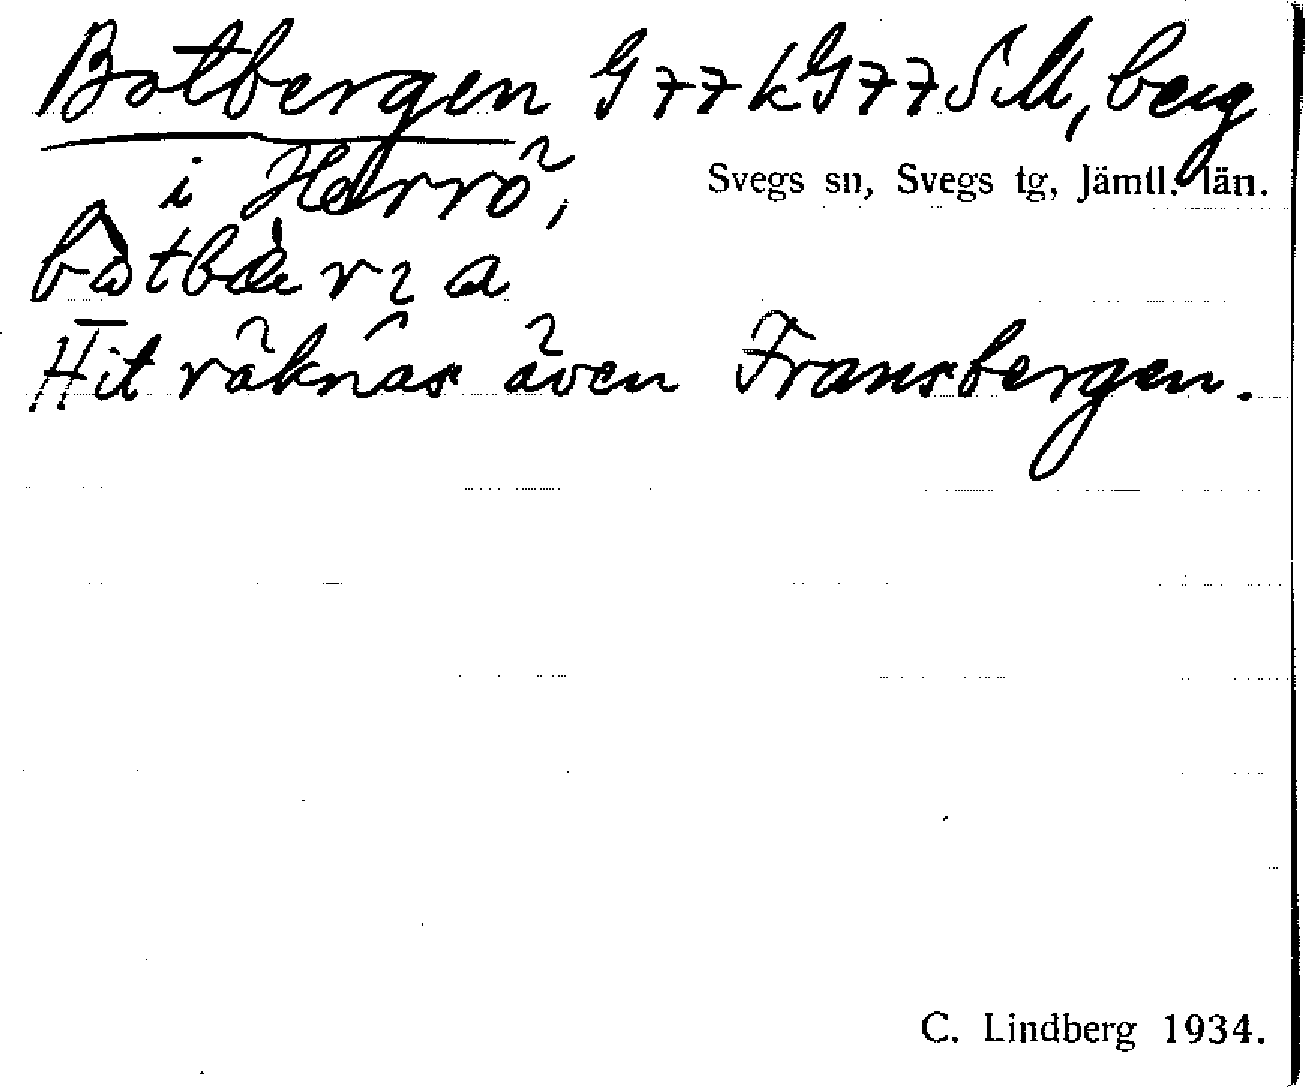 Botbergen G77kG77SM, berg
i Herrö, Svegs sn, Svegs tg, Jämtl. län.
Hit räknas även Fransbergen.
C. Lindberg 1934.